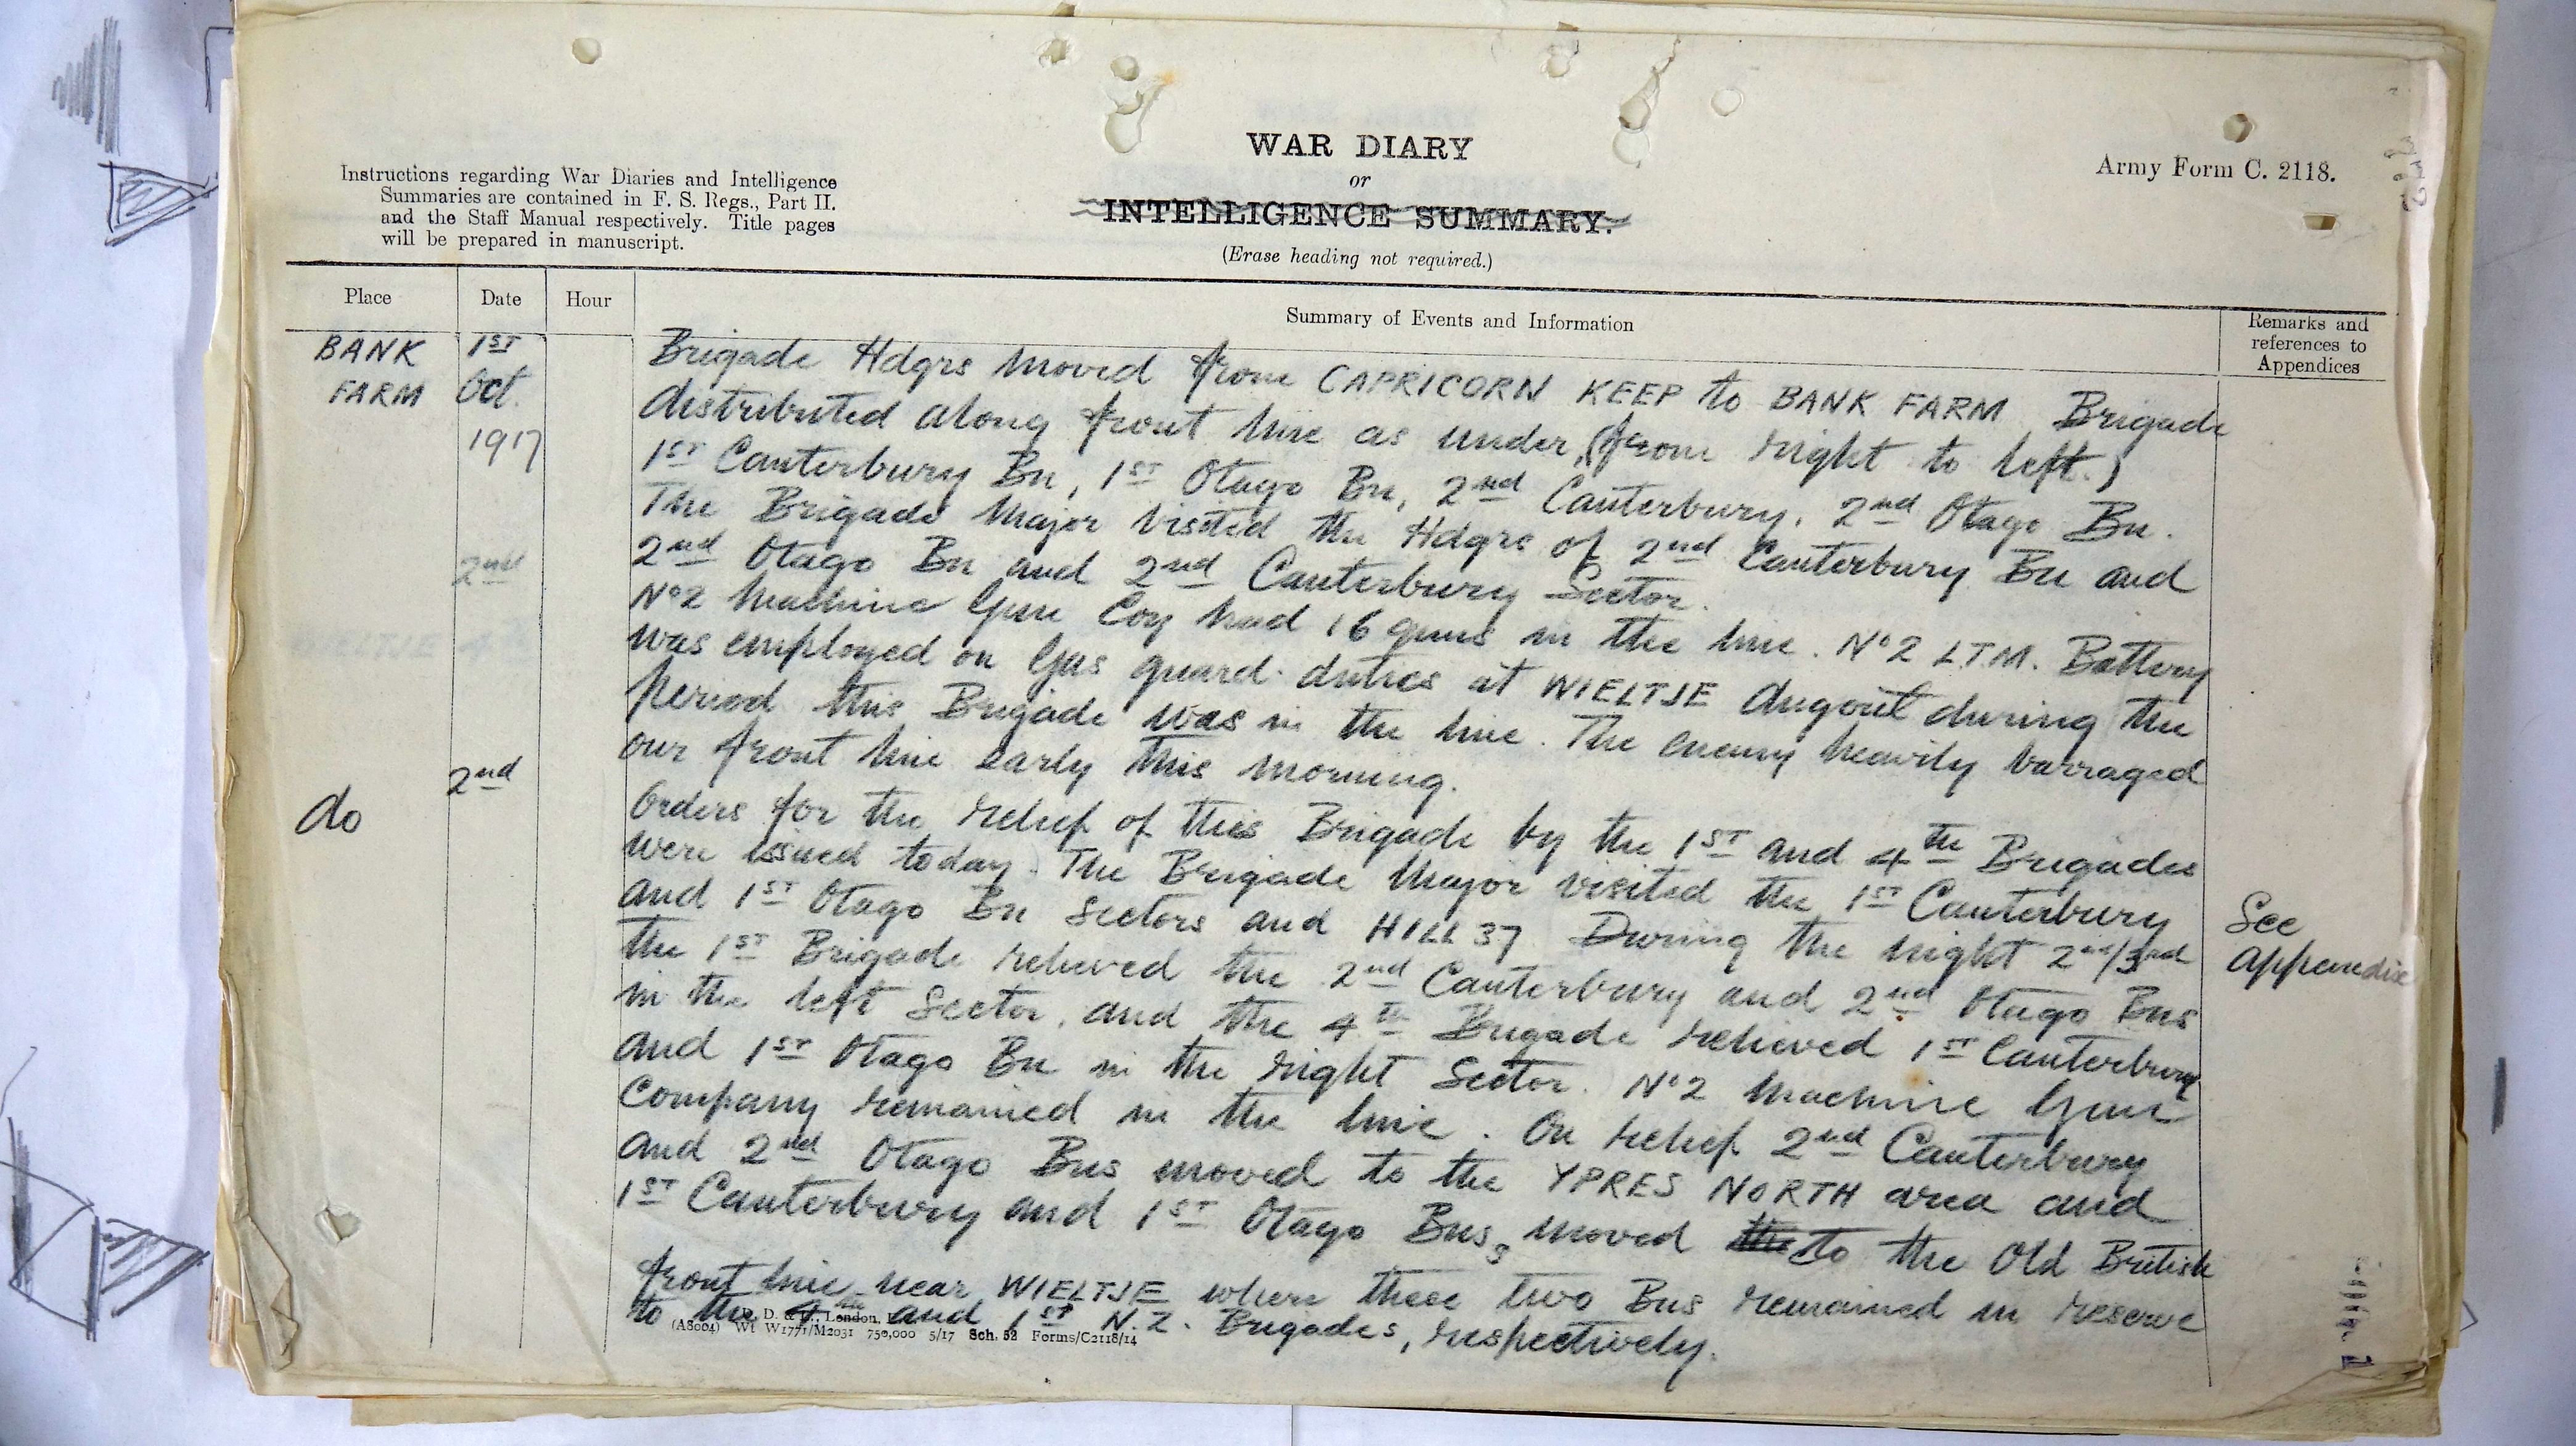 Instructions regarding War Diaries and Intelligence
Summaries are contained in F. S. Regs., Part II.
and the Staff Manual respectively. Title pages
will be prepared in manuscript.
WAR DIARY
or
INTELLIGENCE SUMMARY.
(Erase heading not required.)
Army Form C. 2118.
Place
Date
Hour
Summary of Events and Information
Remarks and
references to
Appendices
BANK
FARM
1ST
Oct.
1917
Brigade Hdqrs moved from CAPRICORN KEEP to BANK FARM Brigade
distributed along front line as under, (from right to left.)
1ST Canterbury Bn, 1ST Otago Bn, 2nd Canterbury, 2nd Otago Bn.
The Brigade Major visited the Hdqrs of 2nd Canterbury Bn and
2nd
2nd Otago Bn and 2nd Canterbury Sector.
No 2 Machine Gun Coy had 16 guns in the line. No 2 L.T.M. Battery
was employed on Gas guard duties at WIELTJE dugout during the
period this Brigade was in the line. The enemy heavily barraged
our front line early this morning.
do
2nd
Orders for the relief of this Brigade by the 1ST and 4th Brigades
were issued today. The Brigade Major visited the 1ST Canterbury
and 1ST Otago Bn Sectors and HILL 37 During the night 2nd/3rd
the 1ST Brigade relieved the 2nd Canterbury and 2nd Otago Bns
in the left Sector, and the 4th Brigade relieved 1ST Canterbury
and 1ST Otago Bn in the right Sector. No 2 Machine Gun
Company remained in the line. On relief 2nd Canterbury
and 2nd Otago Bns moved to the YPRES NORTH area and
1ST Canterbury and 1ST Otago Bns, moved the to the Old British
front line near WIELTJE where these two Bns remained in reserve
to the 4th and 1ST N.Z. Brigades, respectively.
See
appendix
(A8004) Wt W1771/M2031 750,000 5/17 Sch. 52 Forms/C2118/14